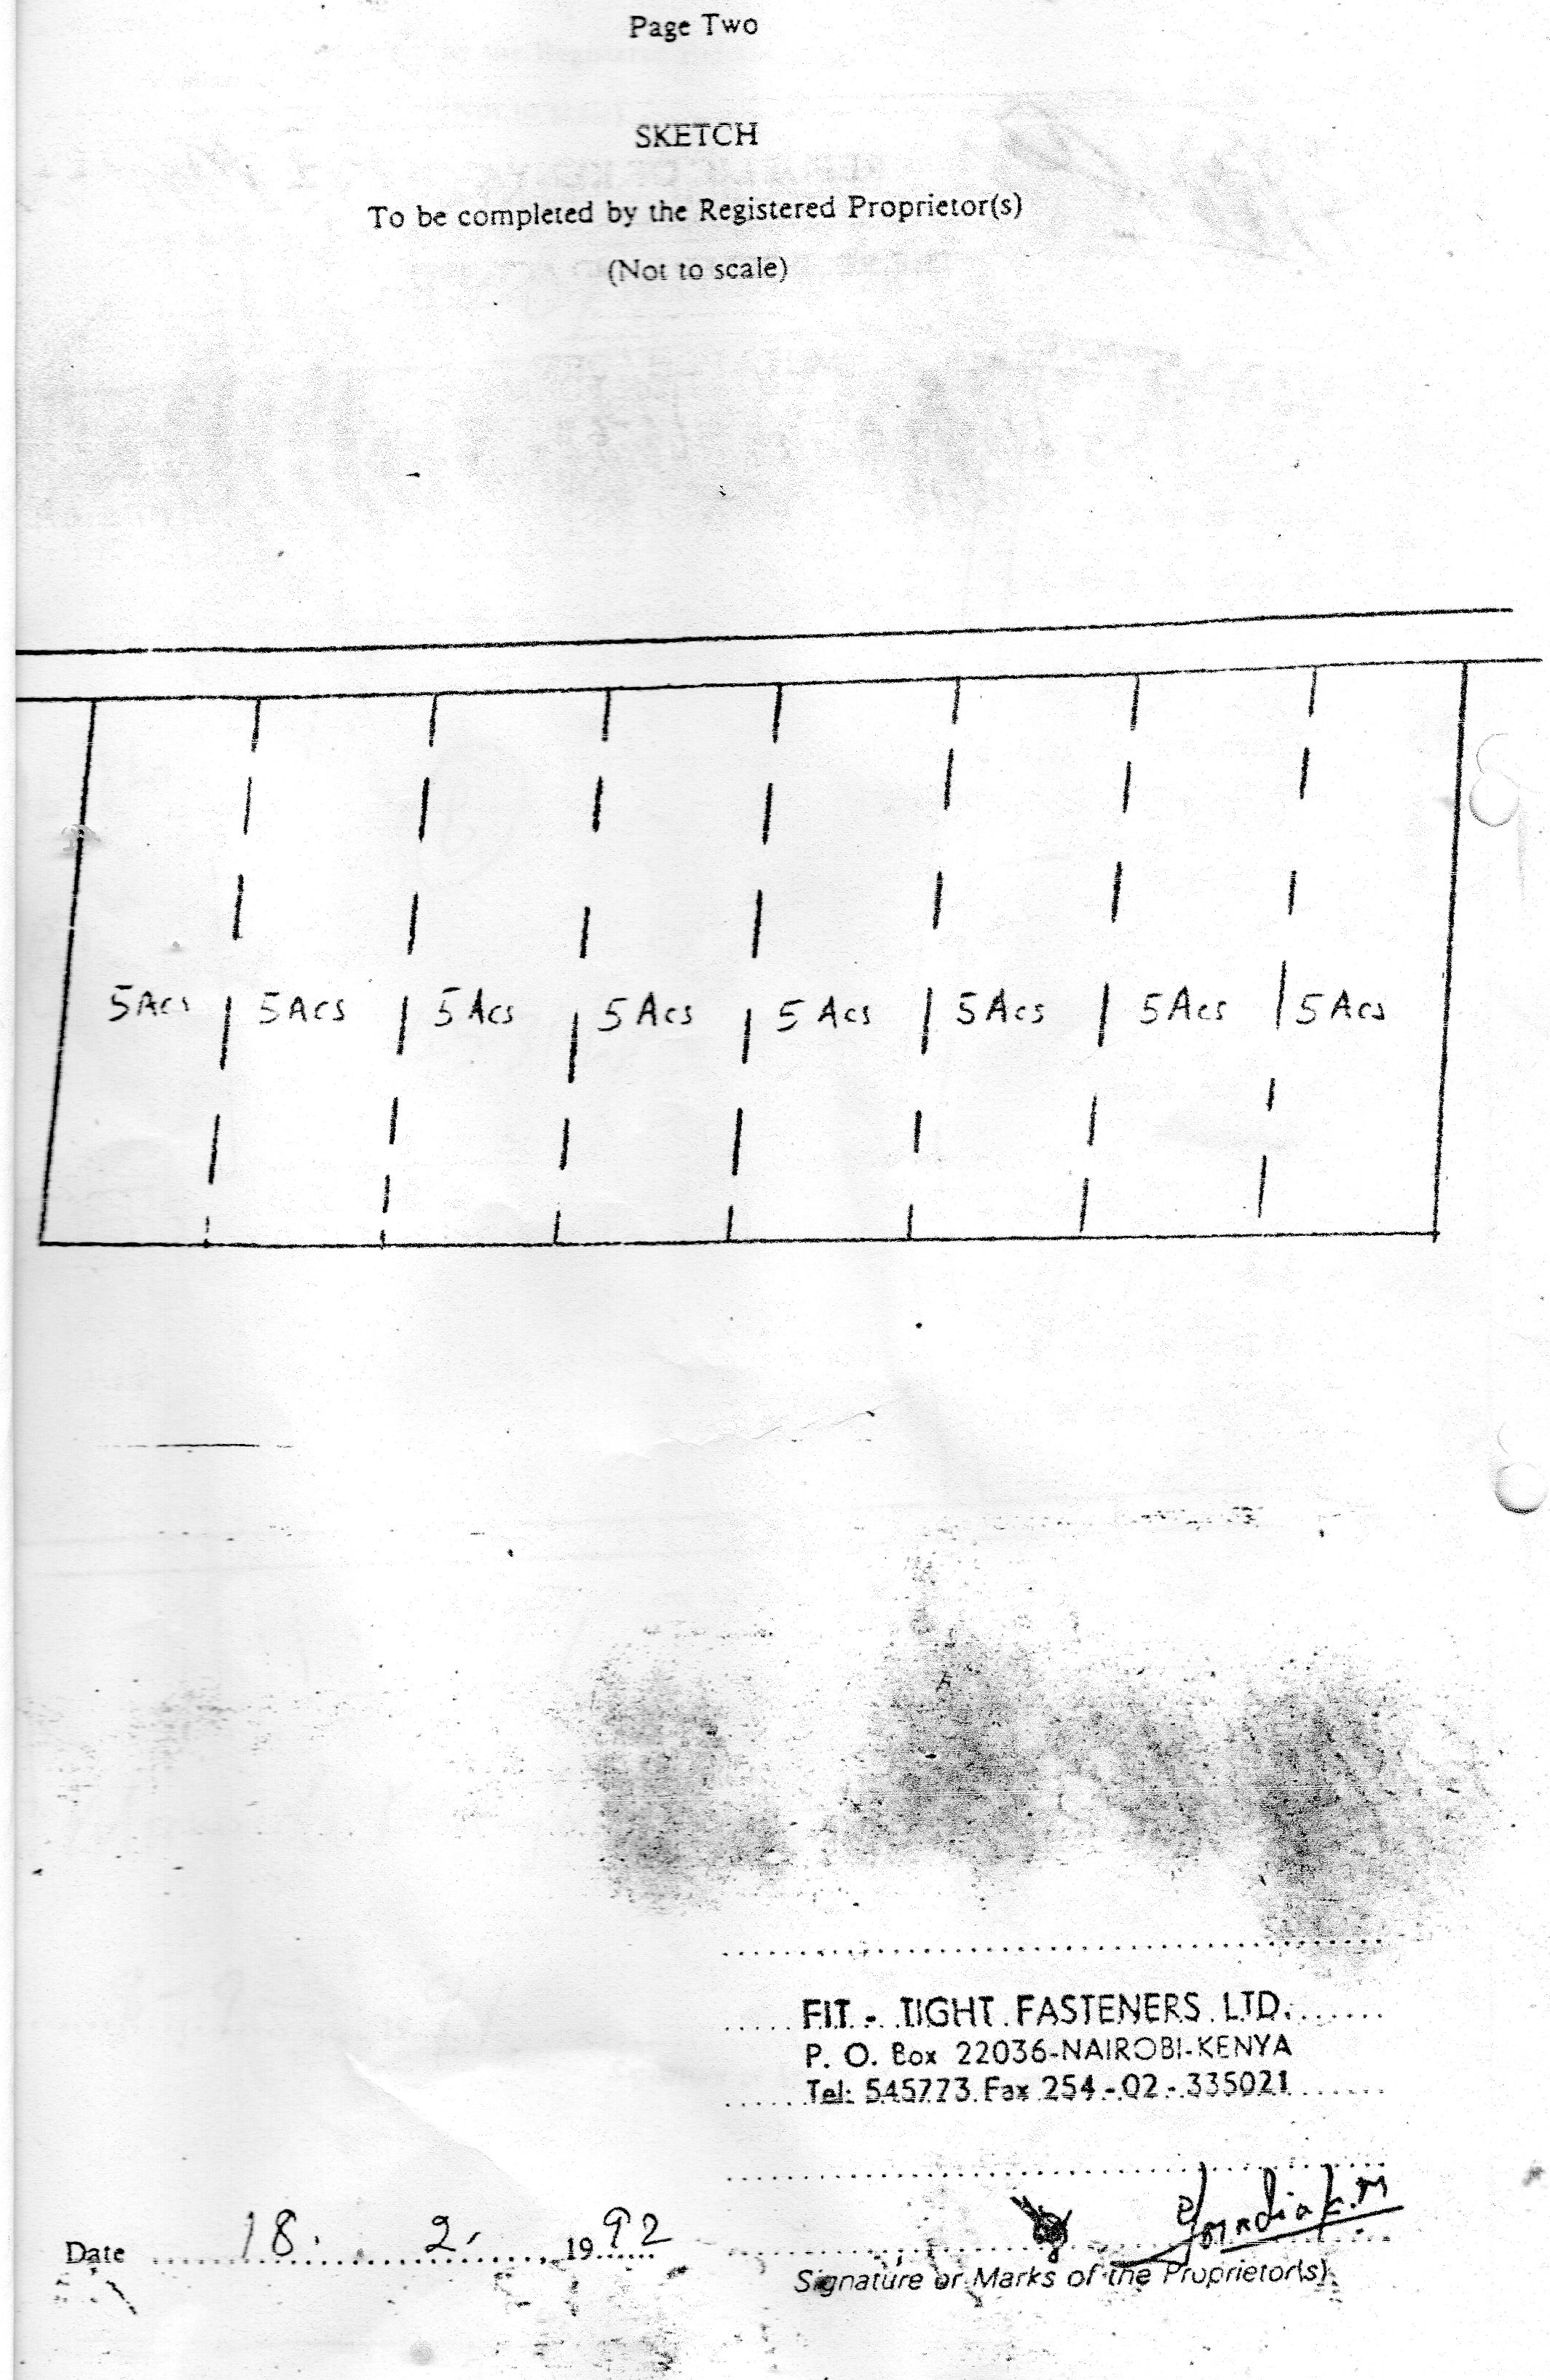 Page Two
SKETCH
To be completed by the Registered Proprietor(s)
(Not to scale)
5 Acs 5 Acs 5 Acs 5 Acs 5 Acs 5 Acs 5 Acs 5 Acs
FIT - TIGHT FASTENERS LTD.
P. O. Box 22036-NAIROBI-KENYA
Tel: 545773 Fax 254-02-335021
Date 18. 2. 1992
Signature or Marks of the Proprietor(s)